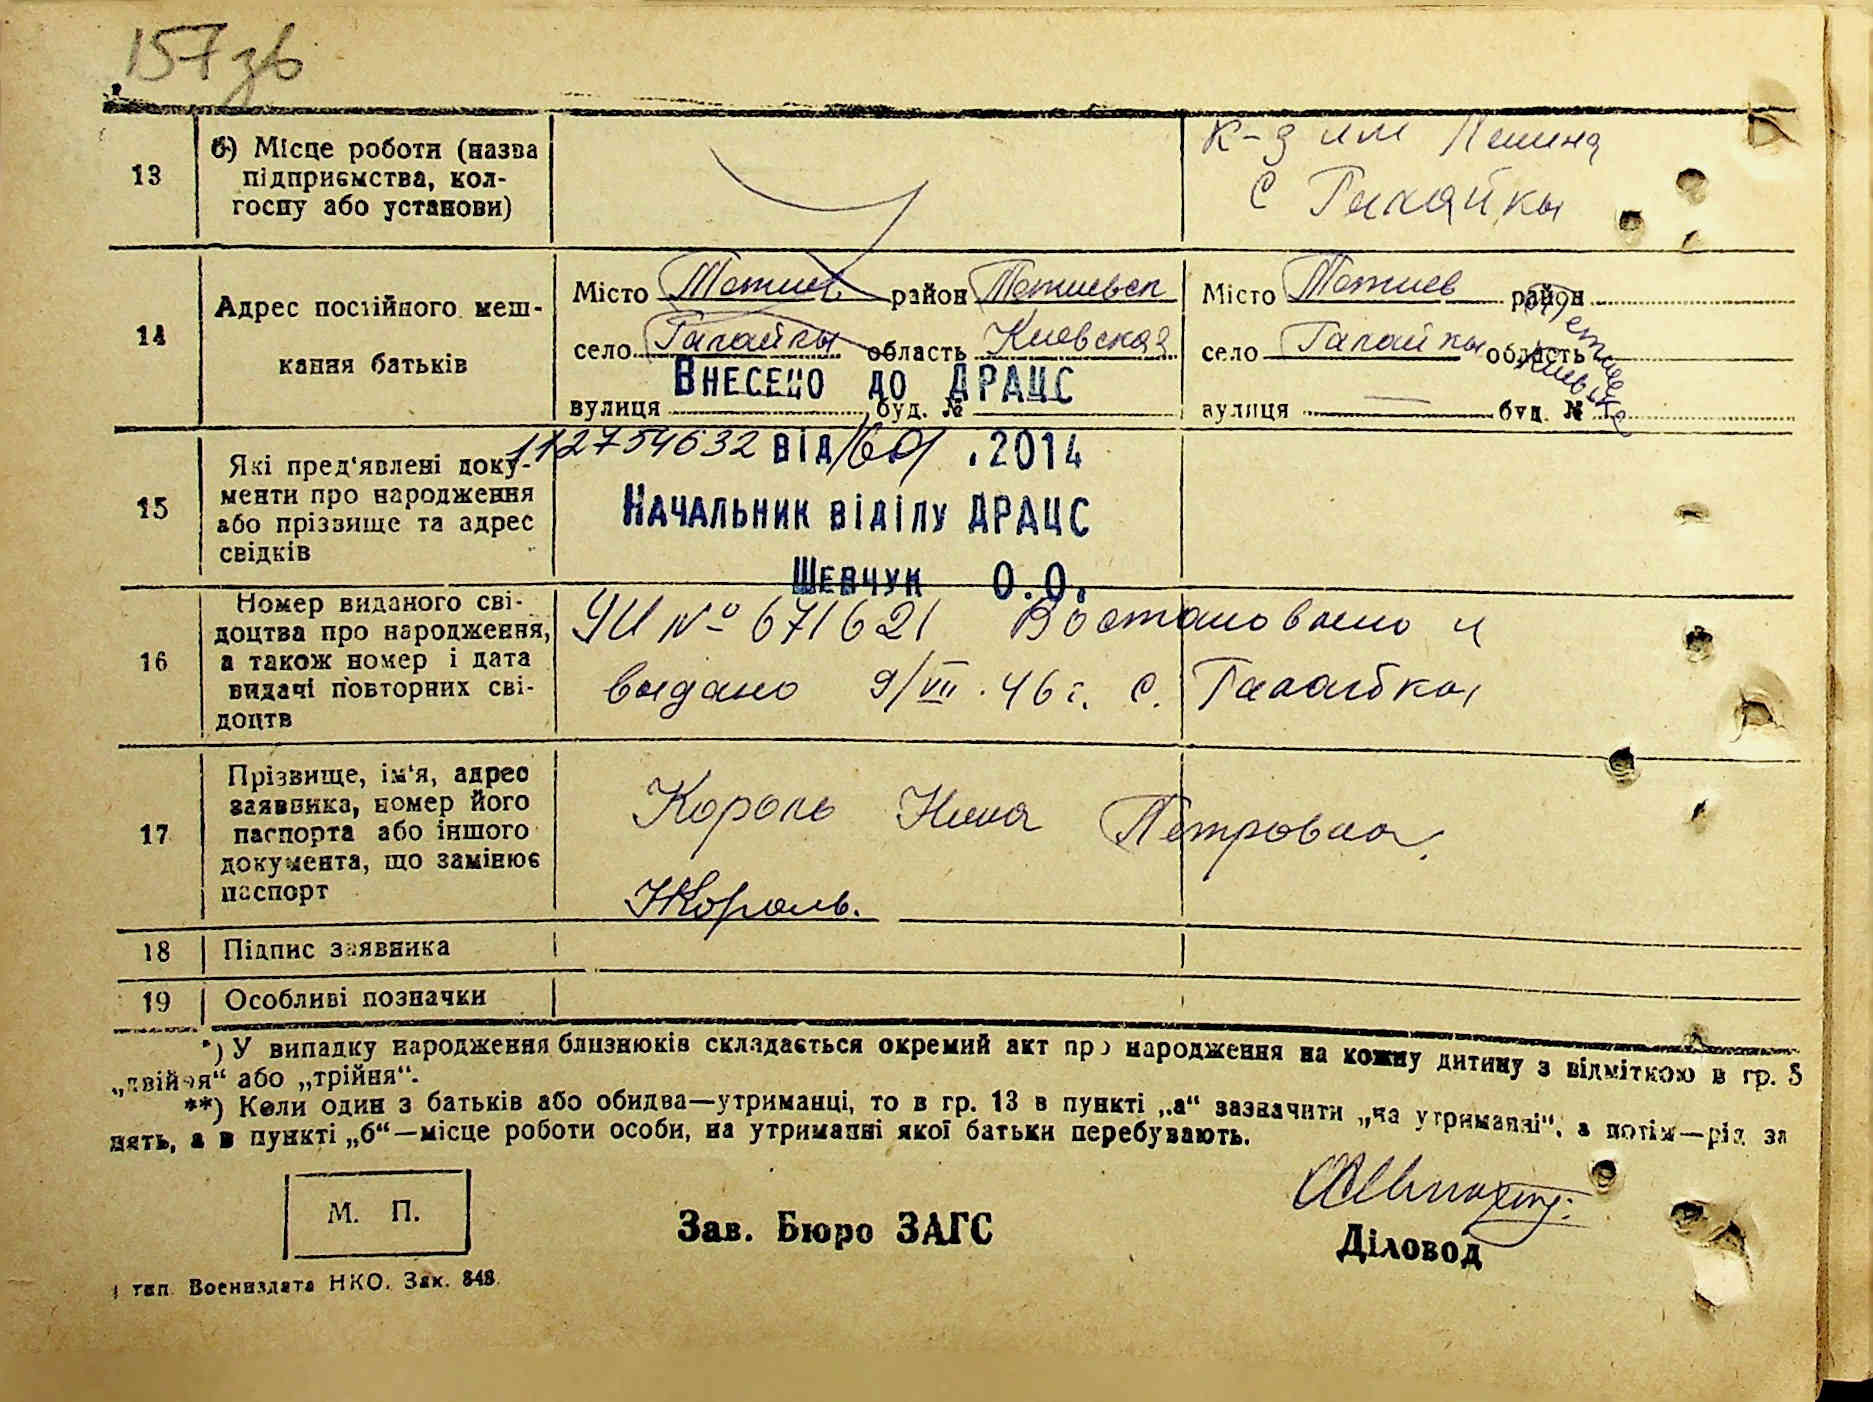 157 зв
13
б) Місце роботи (назва
підприємства, кол-
госпу або установи)
к-з им Ленина
с Галайки
14
Адрес постійного меш-
кання батьків
Місто Тетиев район Тетиевск
село Галайки область Киевская
вулиця буд. №
Місто Тетиев район Тетиев
село Галайки область Киевск
вулиця — буд. №
Внесено до ДРАЦС
112754632 від 16 01 .2014
Начальник відділу ДРАЦС
Шевчук О.О.
15
Які пред'явлені доку-
менти про народження
або прізвище та адрес
свідків
16
Номер виданого сві-
доцтва про народження,
а також номер і дата
видачі повторних сві-
доцтв
УИ № 671621 Востановлено и
выдано 9/VII. 46 г. с. Галайки
17
Прізвище, ім'я, адрес
заявника, номер його
паспорта або іншого
документа, що замінює
паспорт
Король Нина Петровна.
НКороль.
18 Підпис заявника
19 Особливі позначки
*) У випадку народження близнюків складається окремий акт про народження на кожну дитину з відміткою в гр. 5
„двійня“ або „трійня“.
**) Коли один з батьків або обидва—утриманці, то в гр. 13 в пункті „а“ зазначити „на утриманні“, а потім—рід за
нять, а в пункті „б“—місце роботи особи, на утриманні якої батьки перебувають.
М. П.
Зав. Бюро ЗАГС
Діловод
тип. Воениздата НКО. Зак. 848